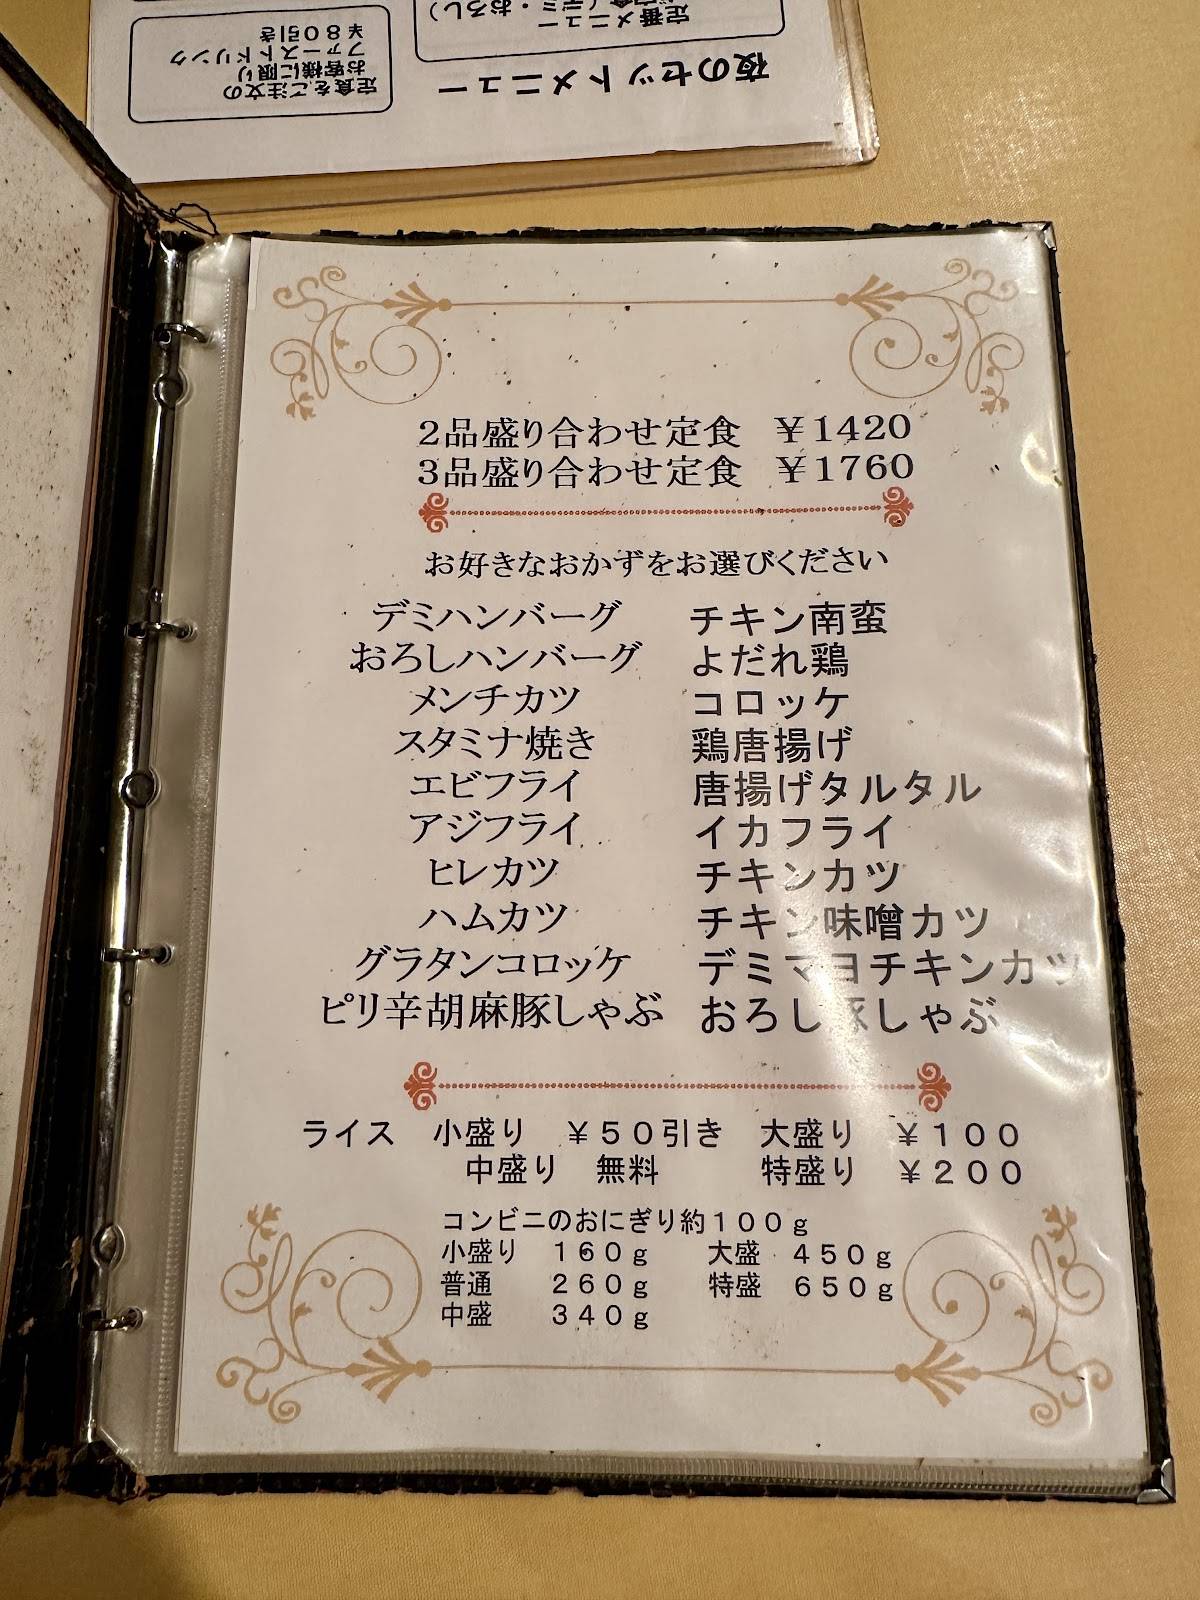 定食をご注文の
お客様に限り
ファーストドリンク
￥80引き
夜のセットメニュー
定番メニュー
（デミ・おろし）
2品盛り合わせ定食 ￥1420
3品盛り合わせ定食 ￥1760
お好きなおかずをお選びください
デミハンバーグ チキン南蛮
おろしハンバーグ よだれ鶏
メンチカツ コロッケ
スタミナ焼き 鶏唐揚げ
エビフライ 唐揚げタルタル
アジフライ イカフライ
ヒレカツ チキンカツ
ハムカツ チキン味噌カツ
グラタンコロッケ デミマヨチキンカツ
ピリ辛胡麻豚しゃぶ おろし豚しゃぶ
ライス 小盛り ￥50引き 大盛り ￥100
中盛り 無料 特盛り ￥200
コンビニのおにぎり約100g
小盛り 160g 大盛 450g
普通 260g 特盛 650g
中盛 340g